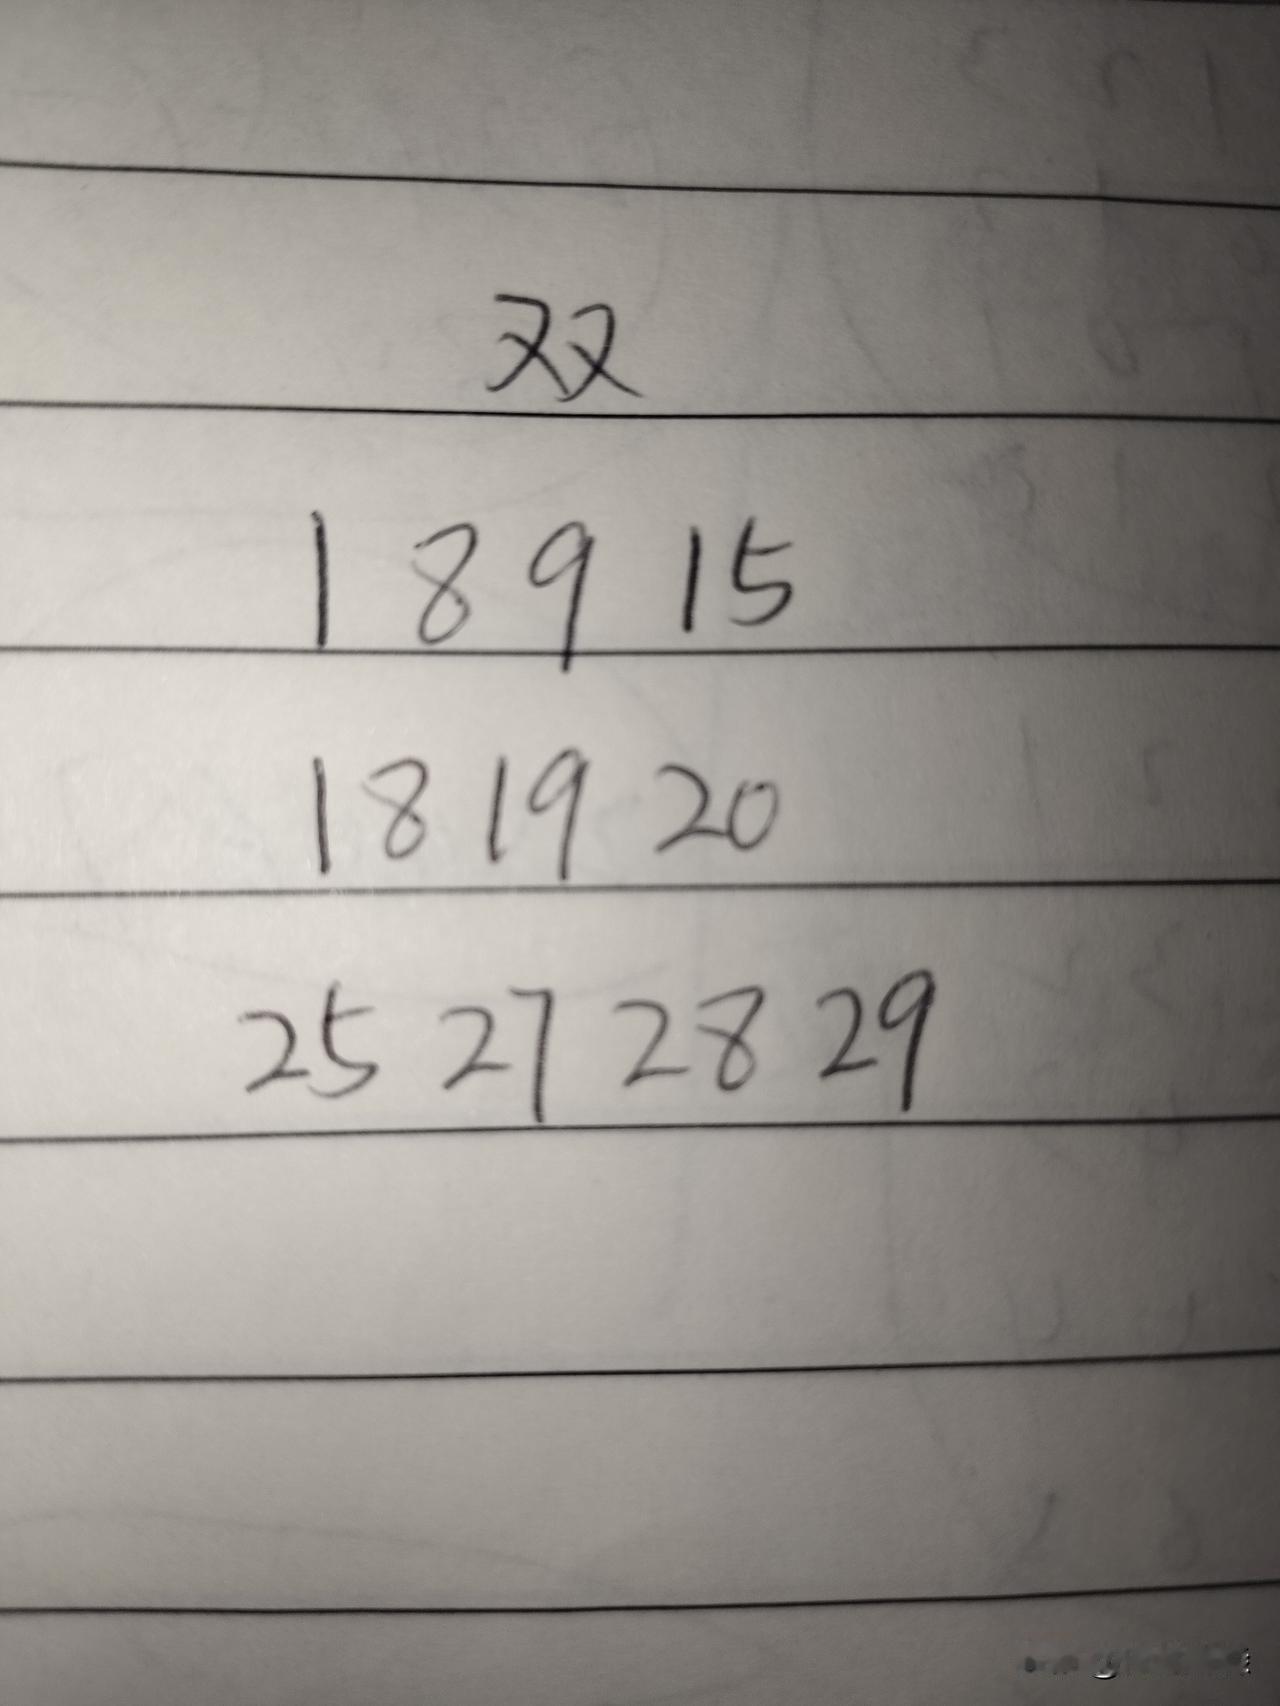 双
1 8 9 15
18 19 20
25 27 28 29